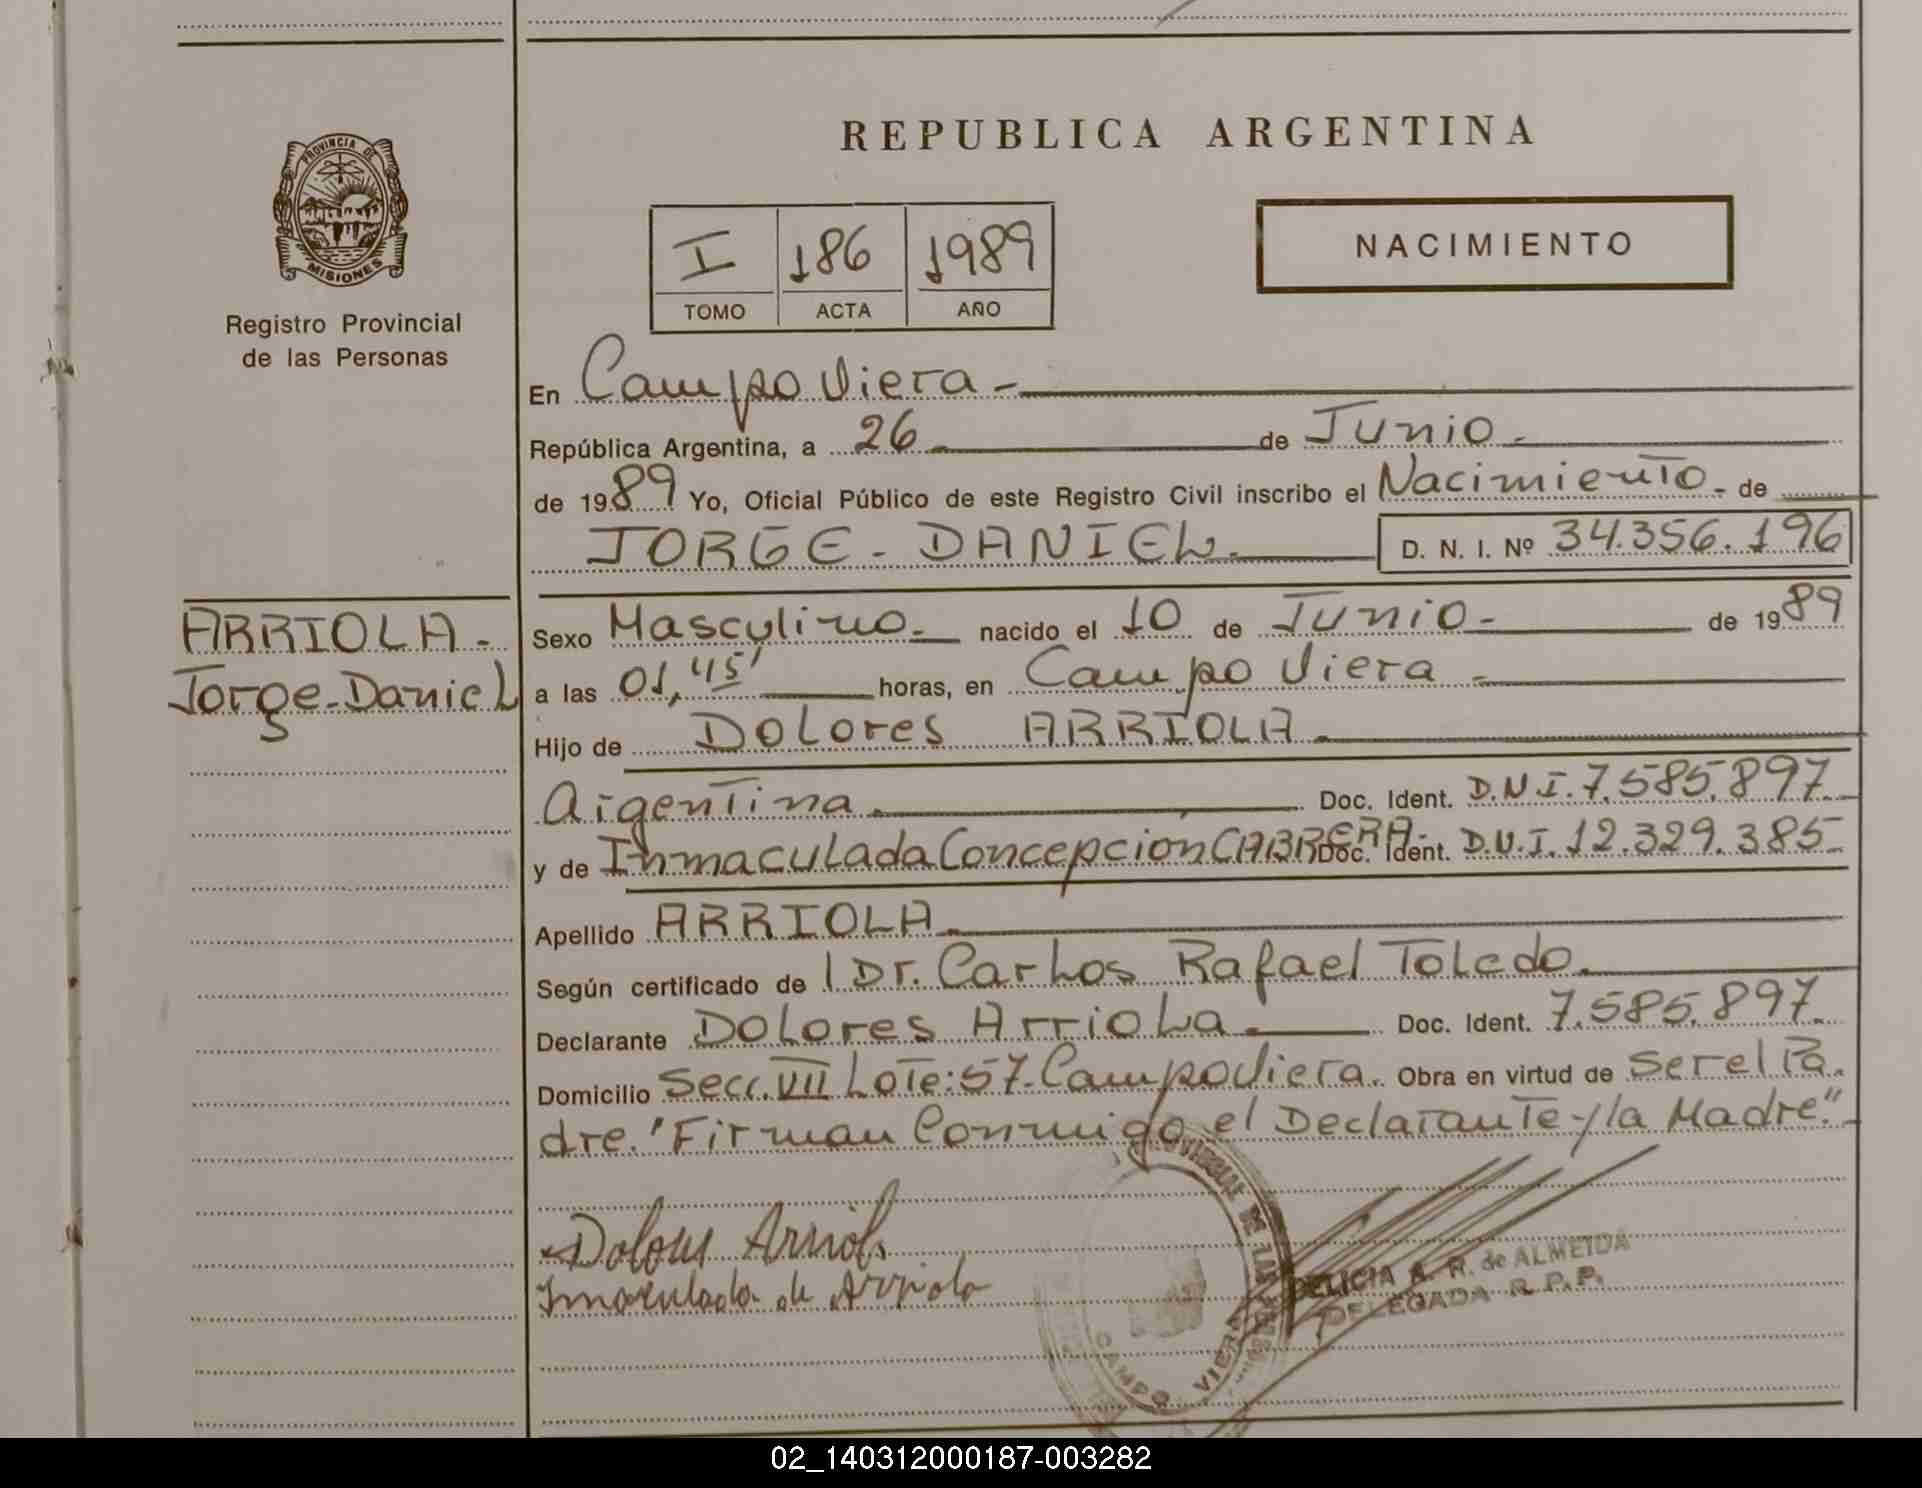 REPUBLICA ARGENTINA
PROVINCIA DE
MISIONES
Registro Provincial
de las Personas
I 186 1989
TOMO ACTA AÑO
NACIMIENTO
En Campo Viera -
República Argentina, a 26 de Junio.
de 1989 Yo, Oficial Público de este Registro Civil inscribo el Nacimiento - de
JORGE - DANIEL. D. N. I. Nº 34.356.196
ARRIOLA -
Jorge-Daniel
Sexo Masculino. nacido el 10 de Junio - de 1989
a las 01,45' horas, en Campo Viera -
Hijo de Dolores ARRIOLA.
Argentina. Doc. Ident. D.N.I. 7.585.897.
y de Inmaculada Concepción CABRERA. Doc. Ident. D.N.I. 12.329.385-
Apellido ARRIOLA.
Según certificado de / Dr. Carlos Rafael Toledo.
Declarante Dolores Arriola. Doc. Ident. 7.585.897.
Domicilio Secc. VII Lote: 57. Campo Viera. Obra en virtud de ser el Pa.
dre. "Firman Conmigo el Declarante y la Madre".
Dolores Arriola
Inmaculada de Arriola
PROVINCIAL DE LAS PERSONAS
CAMPO VIERA
DELICIA A. R. de ALMEIDA
DELEGADA R. P. P.
02_140312000187-003282